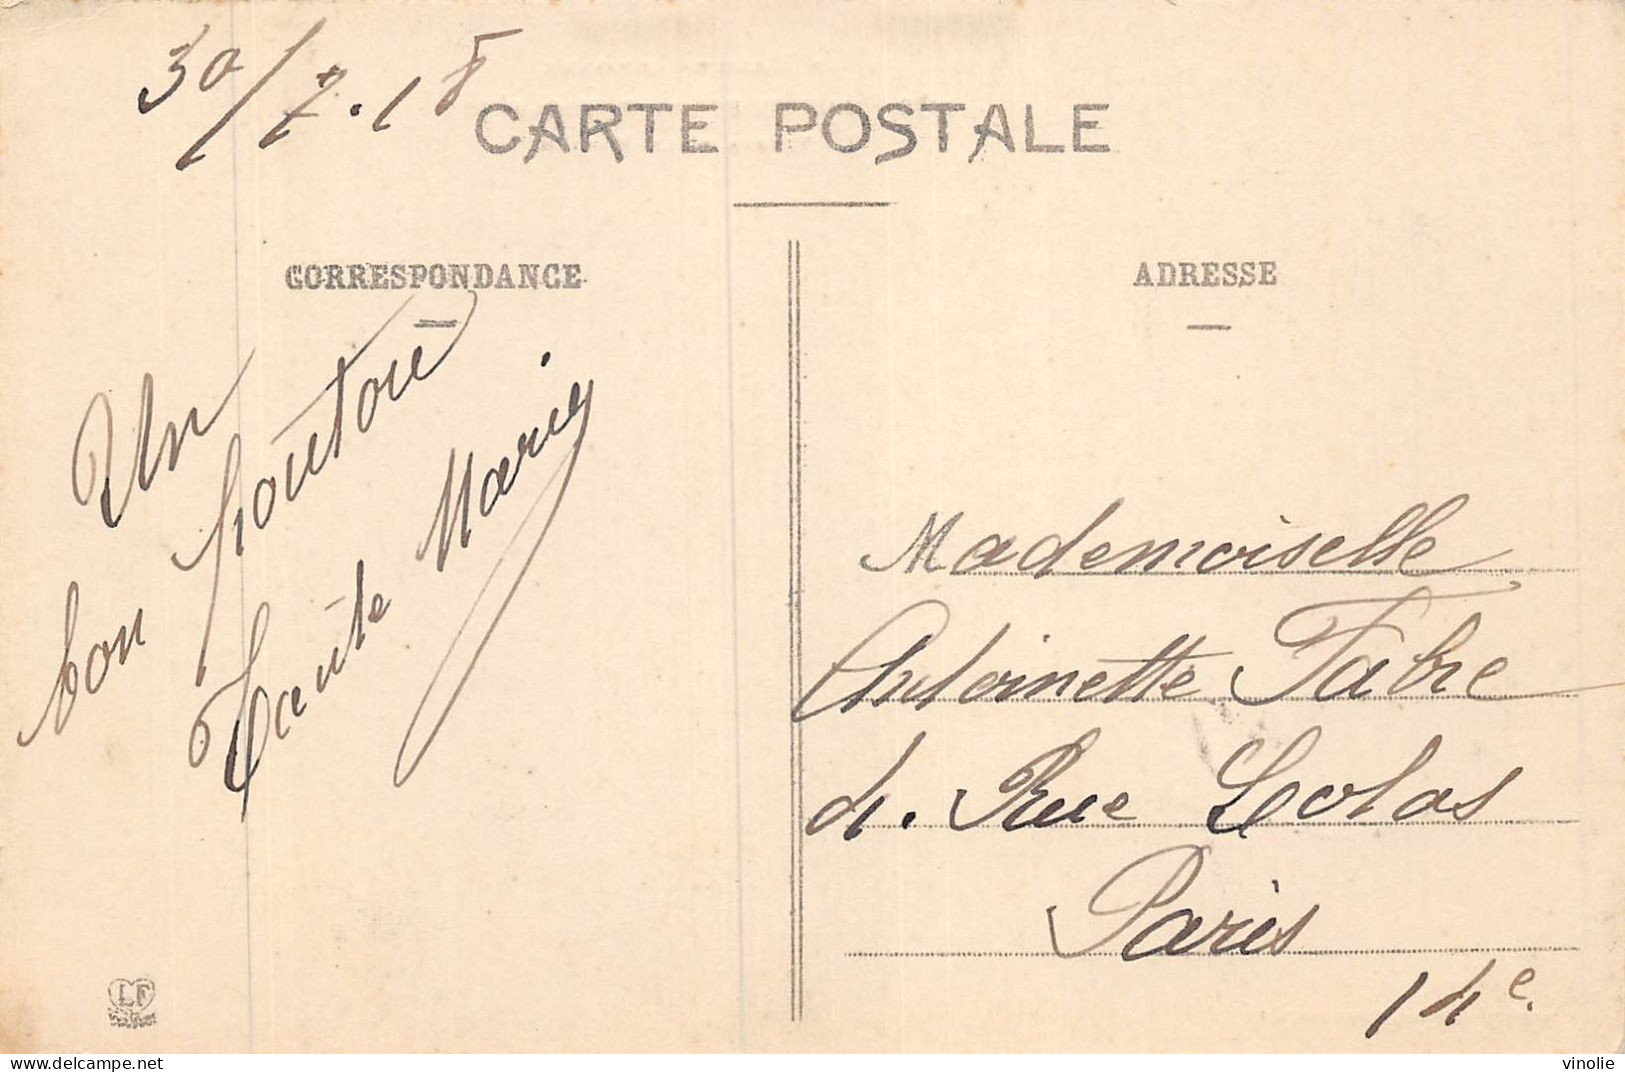 30/7.18
CARTE POSTALE
CORRESPONDANCE
Un
bon poutou
Tante Marie
ADRESSE
Mademoiselle
Antoinette Fabre
4. Rue Leolas
Paris
14e.
LF
delcampe.net
vinolie